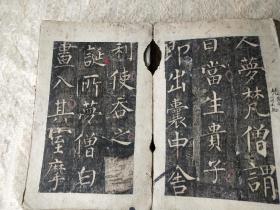 人夢梵僧謂
曰當生貴子
即出囊中舍
利使吞之
誕所夢僧白
晝入其室摩